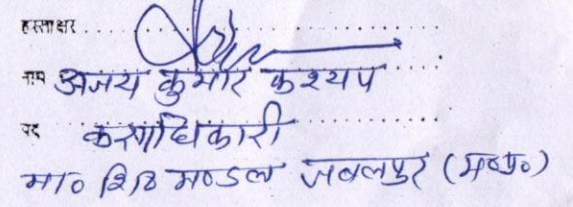 हस्ताक्षर
नाम अजय कुमार कश्यप
पद कक्षाधिकारी
मा० शि० मण्डल जबलपुर (म०प्र०)